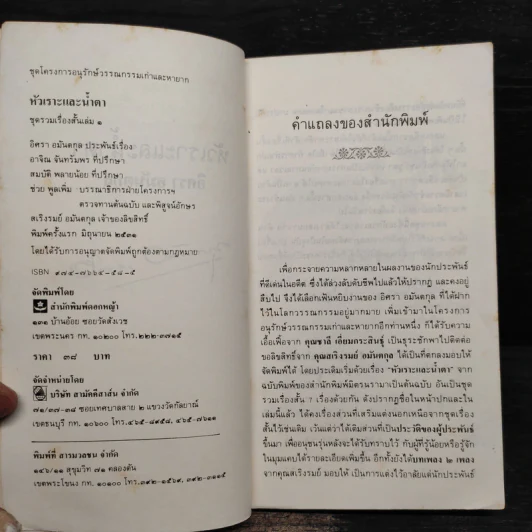 ชุดโครงการอนุรักษ์วรรณกรรมเก่าและหายาก
หัวเราะและน้ำตา
ชุดรวมเรื่องสั้นเล่ม ๑
อิศรา อมันตกุล ประพันธ์เรื่อง
อาจิณ จันทรัมพร ที่ปรึกษา
สมบัติ พลายน้อย ที่ปรึกษา
ช่วย พูลเพิ่ม บรรณาธิการฝ่ายโครงการฯ
ตรวจทานต้นฉบับ และพิสูจน์อักษร
สเริงรมย์ อมันตกุล เจ้าของลิขสิทธิ์
พิมพ์ครั้งแรก มิถุนายน ๒๕๓๑
โดยได้รับการอนุญาตจัดพิมพ์ถูกต้องตามกฎหมาย
ISBN ๙๗๔-๗๖๖๔-๕๘-๕
จัดพิมพ์โดย
สำนักพิมพ์ดอกหญ้า
๑๓๑ บ้านอ้อย ซอยวัดสังเวช
เขตพระนคร กท. ๑๐๒๐๐ โทร.๒๒๒-๓๗๑๕
ราคา ๓๘ บาท
จัดจำหน่ายโดย
บริษัท สามัคคีสาส์น จำกัด
๗๑/๓๗-๓๘ ซอยเทศบาลสาย ๒ แขวงวัดกัลยาณ์
เขตธนบุรี กท. ๑๐๖๐๐ โทร.๔๖๕-๘๙๕๘, ๔๖๕-๗๖๑๑
พิมพ์ที่ สารมวลชน จำกัด
๑๔๖/๑๑ สุขุมวิท ๗๑ คลองตัน
เขตพระโขนง กท. ๑๐๑๑๐ โทร.๓๙๒-๑๕๖๙, ๓๙๒-๓๑๑๕
คำแถลงของสำนักพิมพ์
เพื่อกระจายความหลากหลายในผลงานของนักประพันธ์
ที่ดีเด่นในอดีต ซึ่งได้ล่วงลับดับชีพไปแล้วให้ปรากฏ และคงอยู่
สืบไป จึงได้เลือกเฟ้นหยิบงานของ อิศรา อมันตกุล ที่ได้ฝาก
ไว้ในโลกวรรณกรรมอยู่มากมาย เพิ่มเข้ามาในโครงการ
อนุรักษ์วรรณกรรมเก่าและหายากอีกท่านหนึ่ง ก็ได้รับความ
เอื้อเฟื้อจาก คุณชาลี เอี่ยมกระสินธุ์ เป็นธุระชักพาไปติดต่อ
ขอลิขสิทธิ์จาก คุณสเริงรมย์ อมันตกุล ได้เป็นที่ตกลงมอบให้
จัดพิมพ์ได้ โดยประเดิมเริ่มด้วยเรื่อง “หัวเราะและน้ำตา” จาก
ฉบับพิมพ์ของสำนักพิมพ์มิตรนรามาเป็นต้นฉบับ อันเป็นชุด
รวมเรื่องสั้น ๗ เรื่องด้วยกัน ดังปรากฏชื่อในหน้าปกและใน
เล่มนี้แล้ว ได้คงเรื่องส่วนที่เสริมแต่งนอกเหนือจากชุดเรื่อง
สั้นไว้เช่นเดิม เว้นแต่ว่าได้ตัดเรื่องส่วนที่เป็นประวัติของผู้ประพันธ์
ขึ้นมา เพื่ออนุชนรุ่นหลังจะได้รับทราบไว้ กับผู้ที่รู้น้อยหรือรู้จัก
ในมุมแคบได้รายละเอียดเพิ่มขึ้น อีกทั้งยังได้บทเพลง ๒ เพลง
จากคุณสเริงรมย์ มอบให้ เป็นการแต่งไว้อาลัยแด่นักประพันธ์